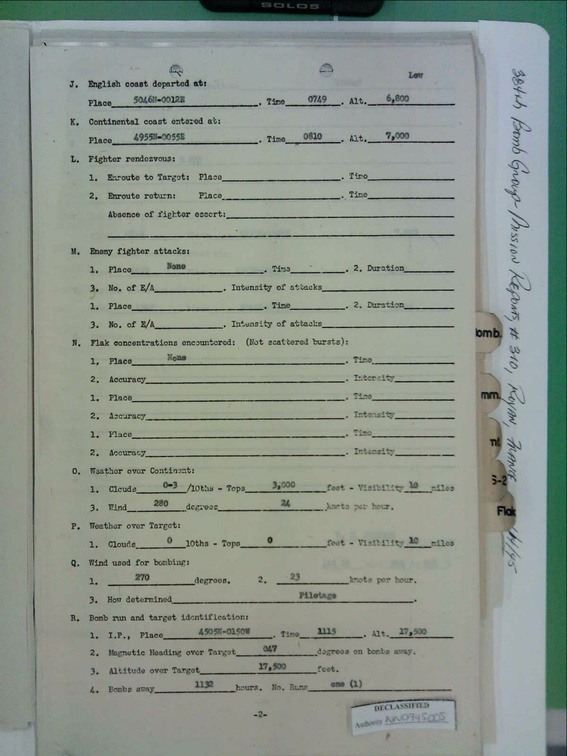 SOLOS
Low
J. English coast departed at:
Place 5046N-0012E . Time 0749 Alt. 6,800
K. Continental coast entered at:
Place 4955N-0055E . Time 0810 Alt. 7,000
L. Fighter rendezvous:
1. Enroute to Target: Place . Time
2. Enroute return: Place . Time
Absence of fighter escort:
M. Enemy fighter attacks:
1. Place None . Time . 2. Duration
3. No. of E/A . Intensity of attacks
1. Place . Time . 2. Duration
3. No. of E/A . Intensity of attacks
N. Flak concentrations encountered: (Not scattered bursts):
1. Place None . Time
2. Accuracy . Intensity
1. Place . Time
2. Accuracy . Intensity
1. Place . Time
2. Accuracy . Intensity
O. Weather over Continent:
1. Clouds 0-3 /10ths - Tops 3,000 feet - Visibility 10 miles
3. Wind 280 degrees 24 knots per hour.
P. Weather over Target:
1. Clouds 0 10ths - Tops 0 feet - Visibility 10 miles
Q. Wind used for bombing:
1. 270 degrees. 2. 23 knots per hour.
3. How determined Pilotage .
R. Bomb run and target identification:
1. I.P., Place 4505N-0150W . Time 1115 . Alt. 17,500
2. Magnetic Heading over Target 047 degrees on bombs away.
3. Altitude over Target 17,500 feet.
4. Bombs away 1132 hours. No. Runs one (1)
-2-
DECLASSIFIED
Authority NND945005
384th Bomb Group - Mission Reports, # 310, Royan, France
omb.
mm.
nt
S-2
Flak